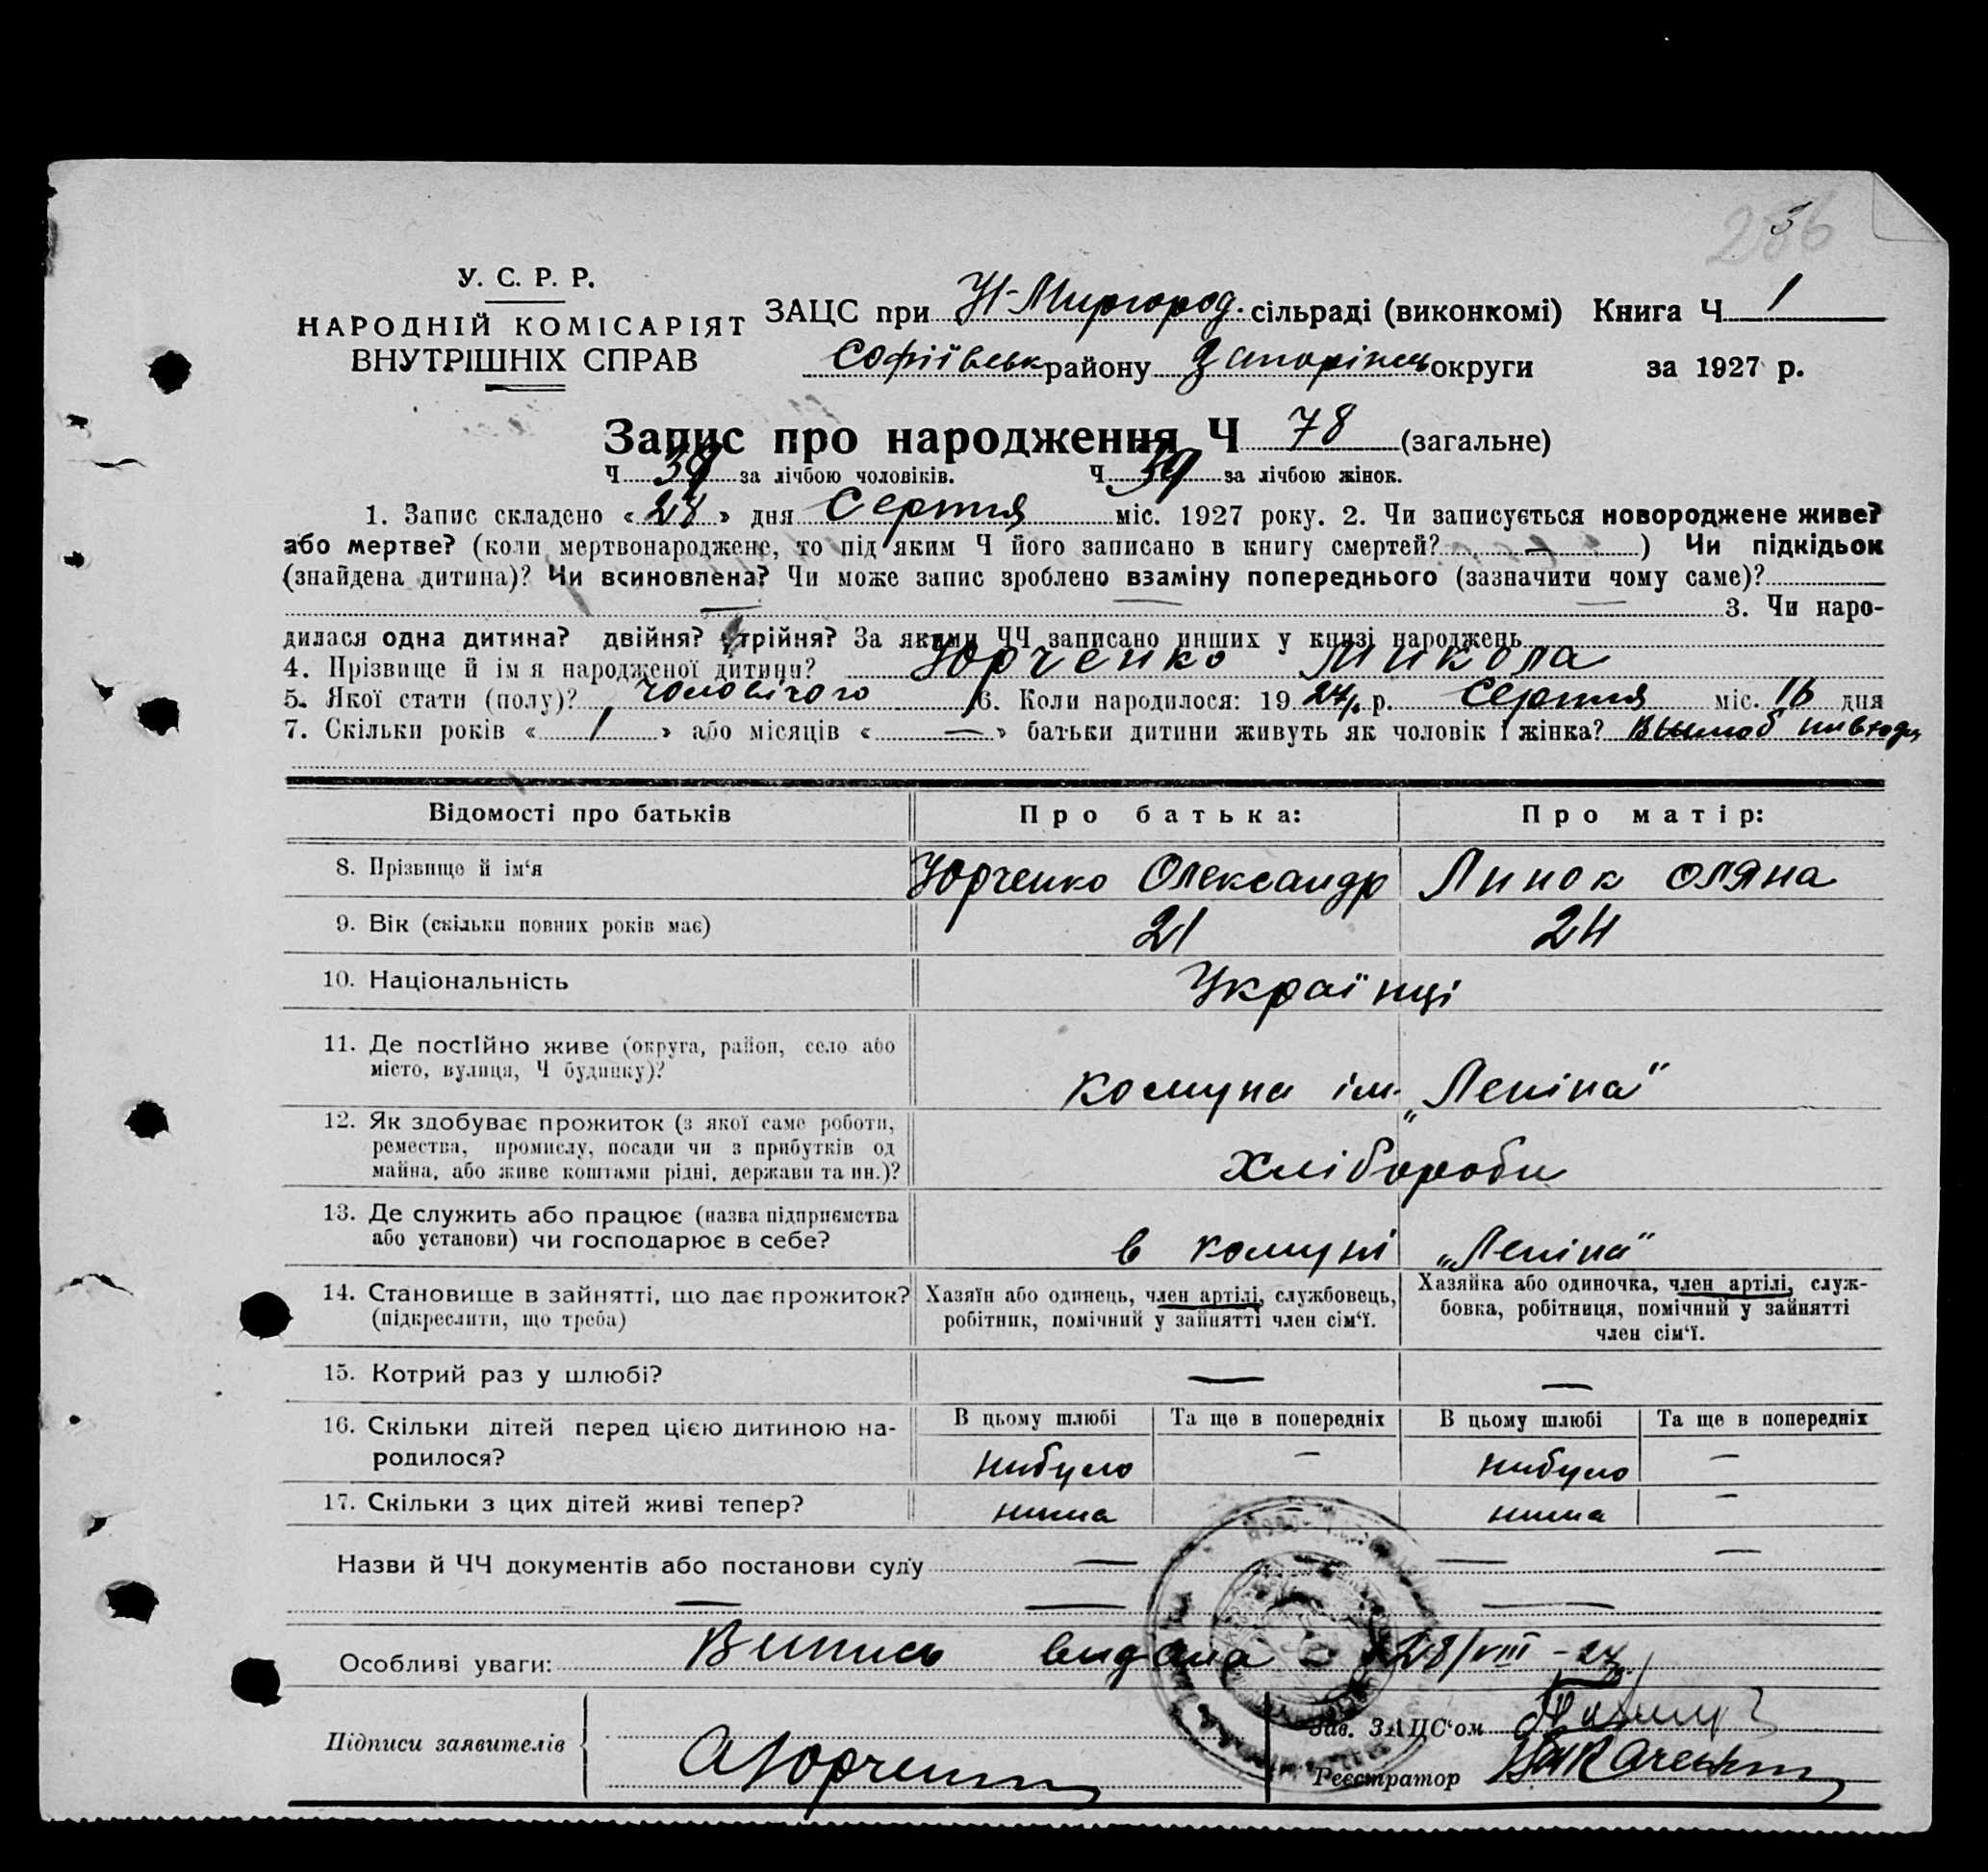 286
3
У. С. Р. Р.
НАРОДНІЙ КОМІСАРІЯТ
ВНУТРІШНІХ СПРАВ
ЗАЦС при Н-Миргород. сільраді (виконкомі) Книга Ч 1
Софіївськ району Запоріж округи за 1927 р.
Запис про народження Ч 78 (загальне)
Ч 39 за лічбою чоловіків. Ч 39 за лічбою жінок.
1. Запис складено «28» дня Серпня міс. 1927 року. 2. Чи записується новороджене живе?
або мертве? (коли мертвонароджене, то під яким Ч його записано в книгу смертей? — ) Чи підкідьок
(знайдена дитина)? Чи всиновлена? Чи може запис зроблено взаміну попереднього (зазначити чому саме)?
— — — 3. Чи наро-
дилася одна дитина? двійня? трійня? За якими ЧЧ записано инших у книзі народжень
4. Прізвище й імя народженої дитини? Юрченко Микола
5. Якої стати (полу)? чоловічого 6. Коли народилося: 1927 р. Серпня міс. 16 дня
7. Скільки років « 1 » або місяців « — » батьки дитини живуть як чоловік і жінка?
Відомості про батьків Про батька: Про матір:
8. Прізвище й ім‘я Юрченко Олександр Линок Оляна
9. Вік (скільки повних років має) 21 24
10. Національність Українці
11. Де постійно живе (округа, район, село або
місто, вулиця, Ч будинку)? комуна ім. „Леніна“
12. Як здобуває прожиток (з якої саме роботи,
ремества, промислу, посади чи з прибутків од
майна, або живе коштами рідні, держави та ин.)? Хлібороби
13. Де служить або працює (назва підприємства
або установи) чи господарює в себе? в комуні „Леніна“
14. Становище в зайнятті, що дає прожиток?
(підкреслити, що треба)
Хазяїн або одинець, член артілі, службовець,
робітник, помічний у зайнятті член сім‘ї.
Хазяйка або одиночка, член артілі, служ-
бовка, робітниця, помічний у зайнятті
член сім‘ї.
15. Котрий раз у шлюбі? — —
16. Скільки дітей перед цією дитиною на-
родилося?
В цьому шлюбі Та ще в попередніх В цьому шлюбі Та ще в попередніх
нибуло — нибуло —
17. Скільки з цих дітей живі тепер? нима — нима —
Назви й ЧЧ документів або постанови суду — — —
— — —
Особливі уваги: Випись видана 28/VIII - 27
Підписи заявителів А Юрченко
Зав. ЗАЦС‘ом
Реєстратор